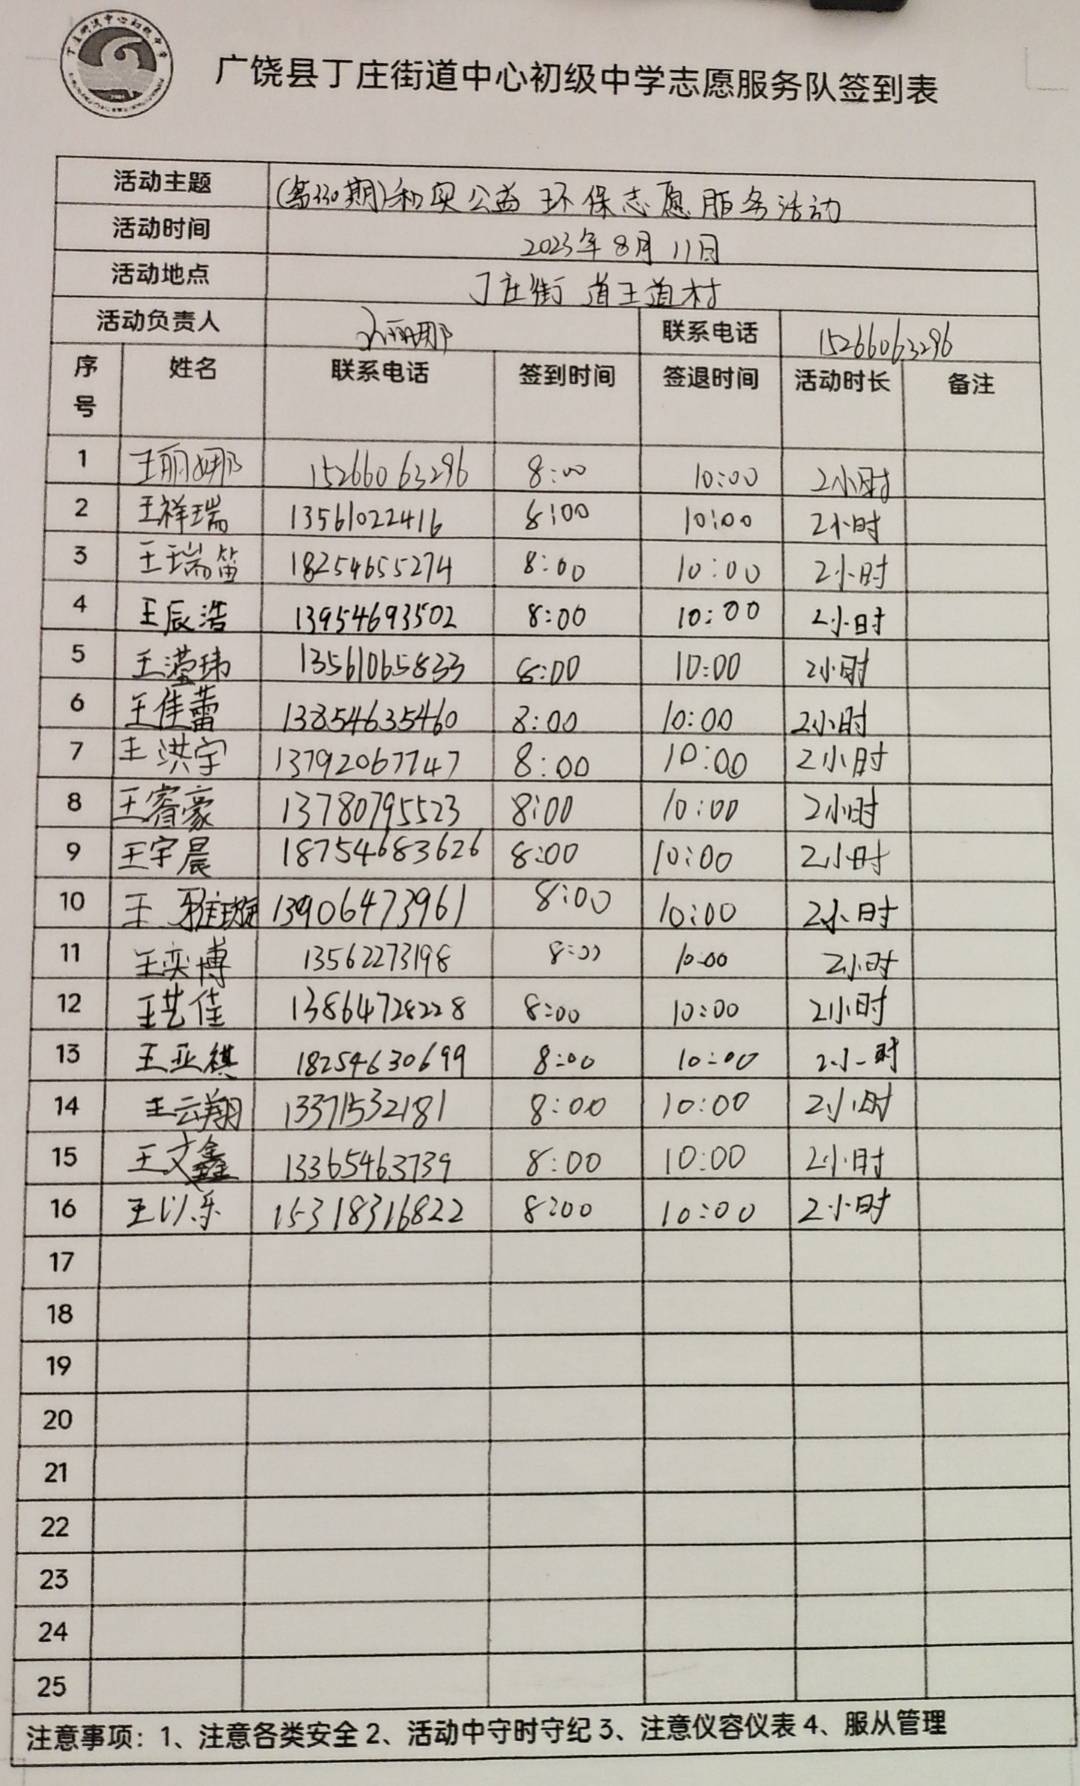 广饶县丁庄街道中心初级中学志愿服务队签到表
活动主题 (第330期)和贝公益环保志愿服务活动
活动时间 2023年8月11日
活动地点 丁庄街道王道村
活动负责人 王丽娜 联系电话 15266063296
序号 姓名 联系电话 签到时间 签退时间 活动时长 备注
1 王丽娜 15266063296 8:00 10:00 2小时
2 王祥瑞 13561022416 8:00 10:00 2小时
3 王瑞笛 18254655274 8:00 10:00 2小时
4 王辰浩 13954693502 8:00 10:00 2小时
5 王滢玮 13561065833 8:00 10:00 2小时
6 王佳蕾 13854635460 8:00 10:00 2小时
7 王洪宇 13792067747 8:00 10:00 2小时
8 王睿豪 13780795523 8:00 10:00 2小时
9 王宇晨 18754683626 8:00 10:00 2小时
10 王雅璇 13906473961 8:00 10:00 2小时
11 王奕博 13562273198 8:00 10:00 2小时
12 王艺佳 13864728228 8:00 10:00 2小时
13 王亚祺 18254630699 8:00 10:00 2小时
14 王云翔 13371532181 8:00 10:00 2小时
15 王文鑫 13365463739 8:00 10:00 2小时
16 王以乐 15318316822 8:00 10:00 2小时
17
18
19
20
21
22
23
24
25
注意事项：1、注意各类安全 2、活动中守时守纪 3、注意仪容仪表 4、服从管理